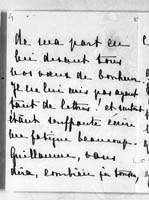 de ma part en
lui disant tous
nos vœux de bonheur
Je ne lui écris pas ayant
tant de lettres! et surtout
étant souffrante écrire
me fatigue beaucoup.
Guillaume, vous
dira, combien je